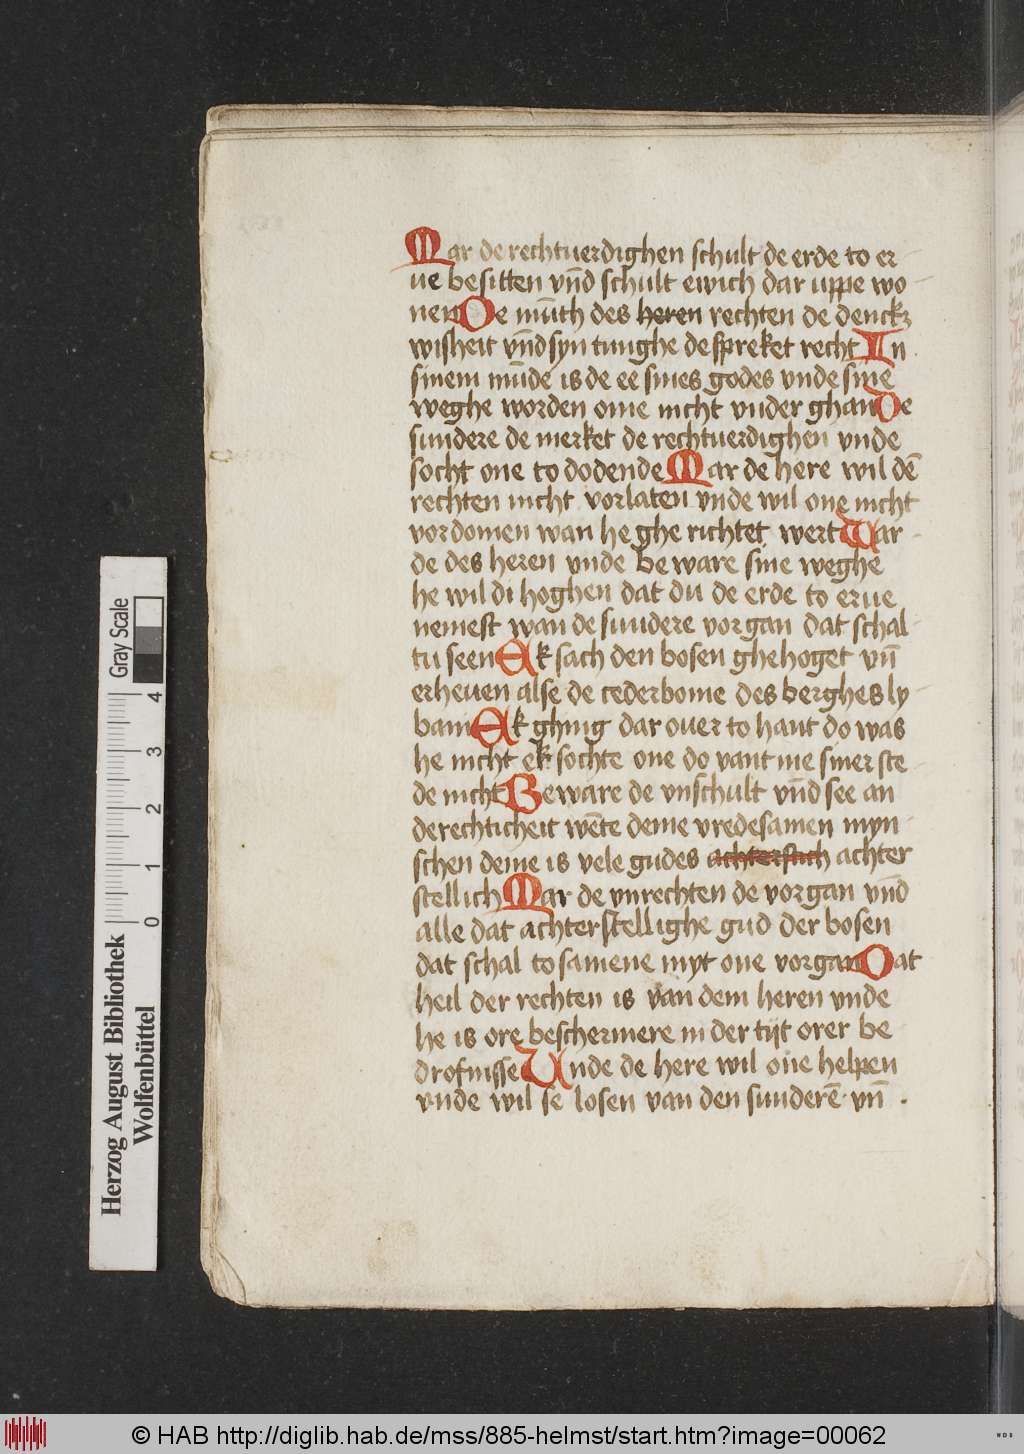 Mar de rechtuerdighen schult de erde to er
ue besitten vn̄d schult ewich dar uppe wo
nen De mūth des heren rechten de denckꝫ
wisheit vn̄d syn tunghe de spreket recht In
sinem mūde is de ee sines godes vnde sine
weghe worden ome nicht vnder ghan De
sundere de merket de rechtuerdighen vnde
socht one to dodende Mar de here wil dē
rechten nicht vorlaten vnde wil one nicht
vordomen wan he ghe richtet wert War
de des heren vnde be ware sine weghe
he wil di hoghen dat du de erde to erue
nemest wan de sundere vorgan dat schal
tu seen Ak sach den bosen ghehoget vn̄
erheuen alse de cederbome des berghes ly
bam Ak ghing dar ouer to hant do was
he nicht ek sochte one do vant me siner ste
de nicht Beware de vnschult vn̄d see an
de rechticheit wēte deme vredesamen myn
schen deme is vele gudes achterstich achter
stellich Mar de vnrechten de vorgan vn̄d
alle dat achterstellighe gud der bosen
dat schal to samene myt one vorgan Dat
heil der rechten is van dem heren vnde
he is ore beschermere in der tijt orer be
drofnisse Vnde de here wil one helpen
vnde wil se losen van den sunderē vn̄ .
Herzog August Bibliothek
Wolfenbüttel
0 1 2 3 4
Gray Scale
© HAB http://diglib.hab.de/mss/885-helmst/start.htm?image=00062
WDB